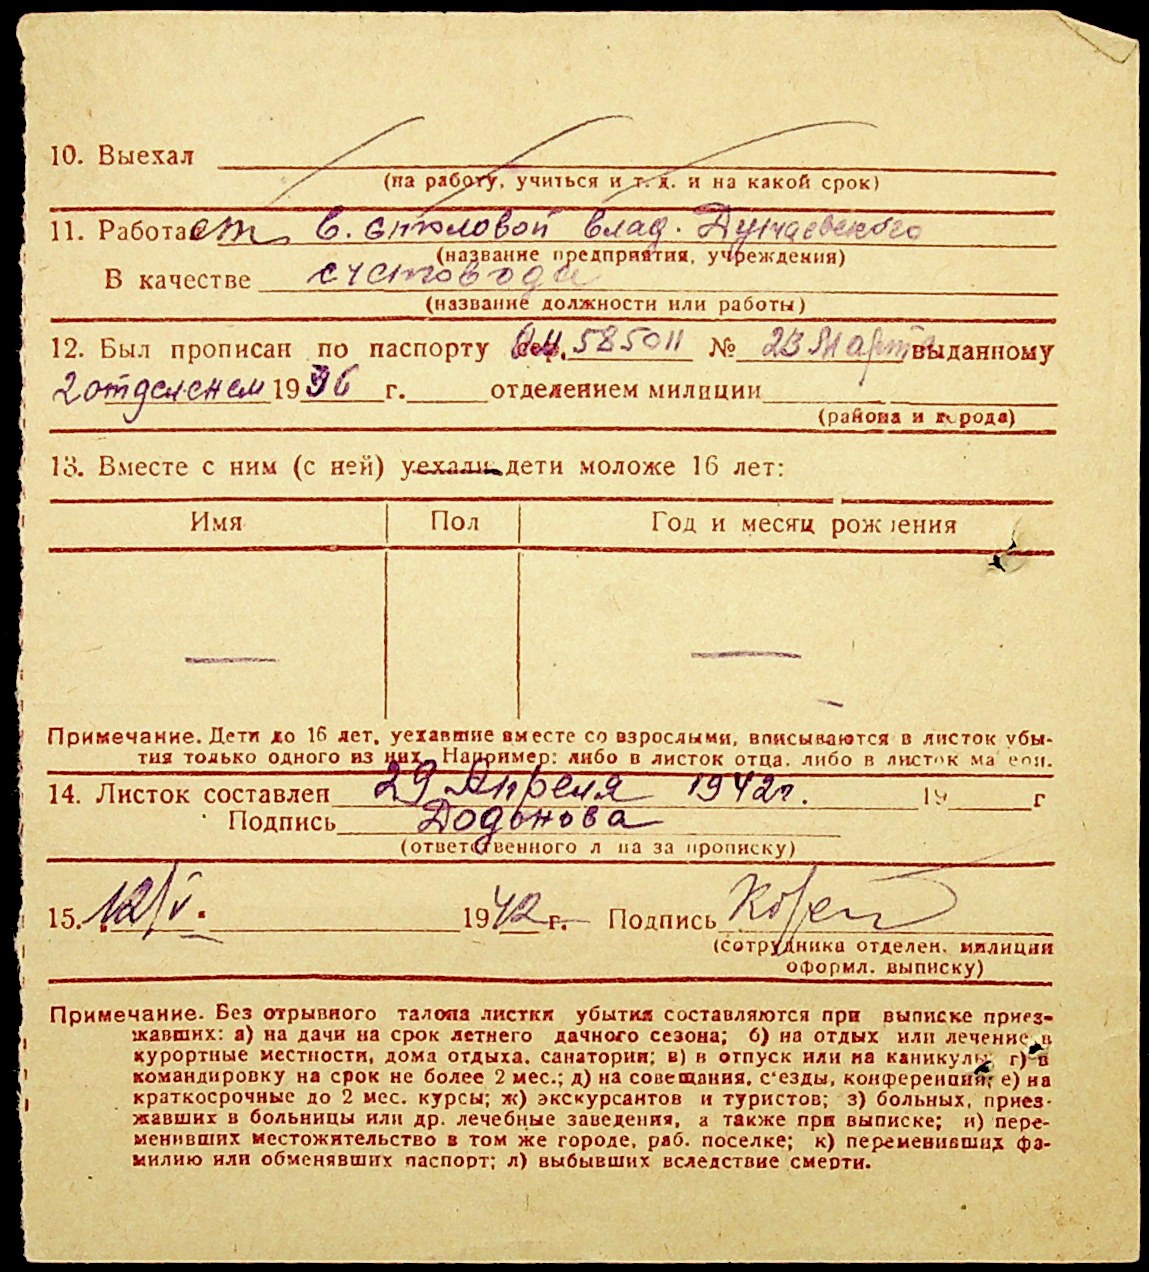 10. Выехал
(на работу, учиться и т. д. и на какой срок)
11. Работает в. столовой влад.
(название предприятия, учреждения)
В качестве счетовода
(название должности или работы)
12. Был прописан по паспорту сер. 585011 № 23 Марта выданному
2 отделенем 1936 г. отделением милиции
(района и города)
13. Вместе с ним (с ней) уехали дети моложе 16 лет:
Имя Пол Год и месяц рождения
— —
Примечание. Дети до 16 лет, уехавшие вместе со взрослыми, вписываются в листок убы-
тия только одного из них. Например: либо в листок отца, либо в листок матери.
14. Листок составлен 29 Апреля 1942г. 19 г
Подпись Додонова
(ответственного лица за прописку)
15. 12/V. 1942 г. Подпись
(сотрудника отделен. милиции
оформл. выписку)
Примечание. Без отрывного талона листки убытия составляются при выписке приез-
жавших: а) на дачи на срок летнего дачного сезона; б) на отдых или лечение в
курортные местности, дома отдыха, санатории; в) в отпуск или на каникулы; г) в
командировку на срок не более 2 мес.; д) на совещания, с'езды, конференции; е) на
краткосрочные до 2 мес. курсы; ж) экскурсантов и туристов; з) больных, приез-
жавших в больницы или др. лечебные заведения, а также при выписке; и) пере-
менивших местожительство в том же городе, раб. поселке; к) переменивших фа-
милию или обменявших паспорт; л) выбывших вследствие смерти.